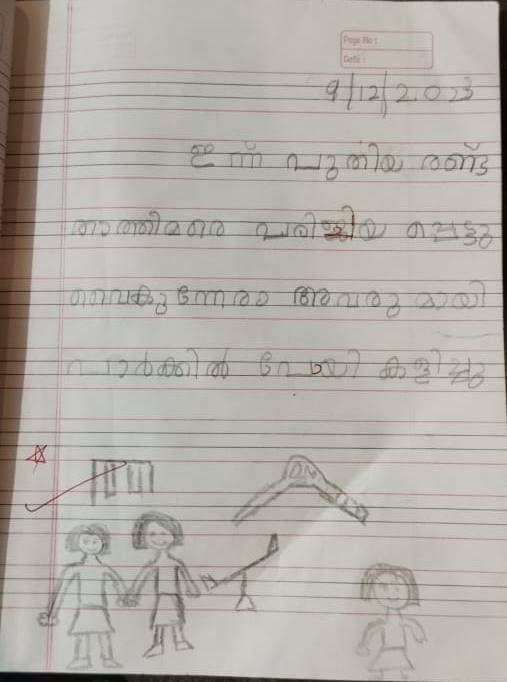 Page No :
Date :
9/12/2023
ഇന്ന് പുതിയ രണ്ട്
താത്തിമരെ പരിജയ പ്പെട്ടു
വൈകുന്നേരം അവരു മായി
പാർക്കിൽ പോയി കളിച്ചു